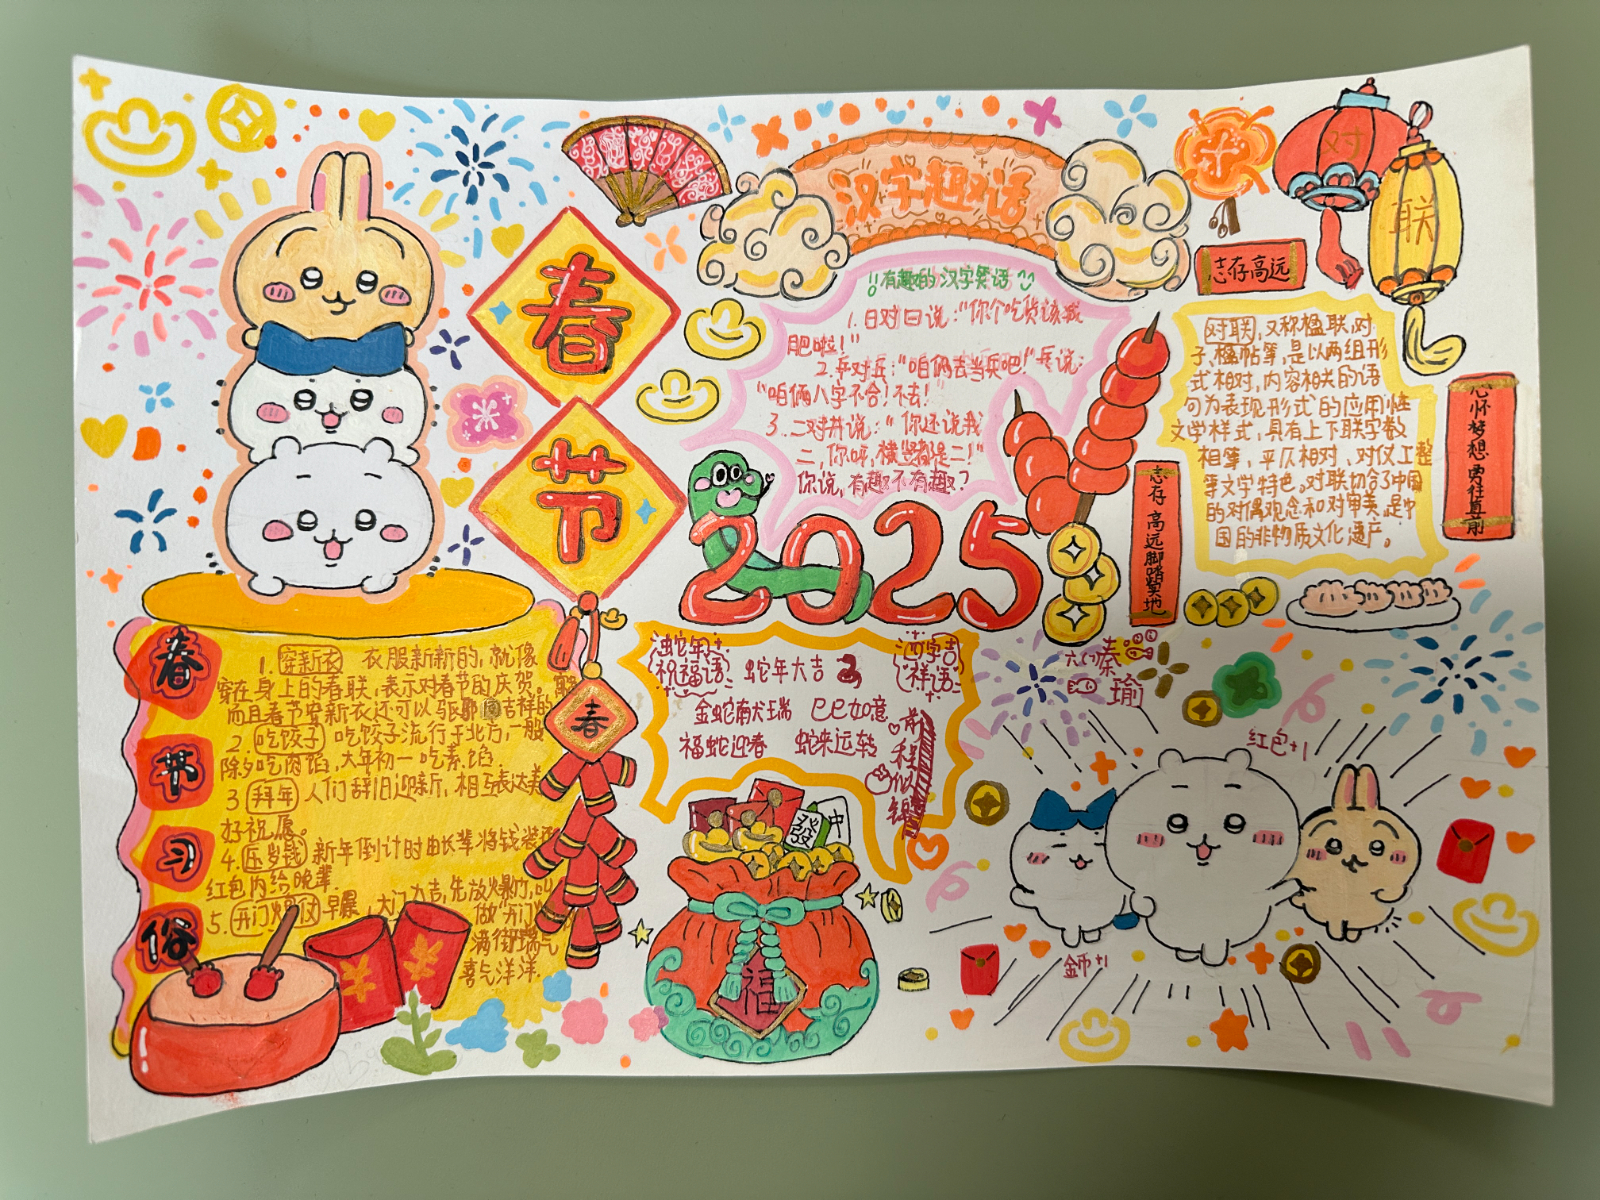 春
节
汉字趣对话
!!有趣的汉字笑语
1.日对曰说:"你个吃货该减
肥啦!"
2.乒对乓:"咱俩去当兵吧!"乓说:
"咱俩八字不合!不去!"
3.二对井说:"你还说我
二,你呀,横竖都是二!"
你说,有趣不有趣?
2025
对
联
志存高远
对联,又称楹联,对
子、楹帖等,是以两组形
式相对,内容相关的语
句为表现形式的应用性
文学样式,具有上下联字数
相等,平仄相对、对仗工整
等文学特色,对联切合了中国
的对偶观念和对审美,是中
国的非物质文化遗产。
心怀梦想勇往直前
志存高远脚踏实地
春
节
习
俗
1.穿新衣 衣服新新的,就像
穿在身上的春联,表示对春节的庆贺。
而且春节穿新衣还可以驱邪 吉祥的
2.吃饺子 吃饺子流行于北方,一般
除夕吃肉馅,大年初一吃素馅
3拜年 人们辞旧迎新,相互表达美
好祝愿。
4.压岁钱 新年倒计时由长辈将钱装
红包内给晚辈.
5.开门爆仗 早晨,大门为吉,先放爆竹,叫
做"开门
满街瑞气
喜气洋洋.
春
蛇年
祝福语
蛇年大吉
四字吉
祥语
金蛇献瑞 巳巳如意
福蛇迎春 蛇来运转
前程似锦
發
中
福
六(1)秦
瑜
红包+1
金币+1